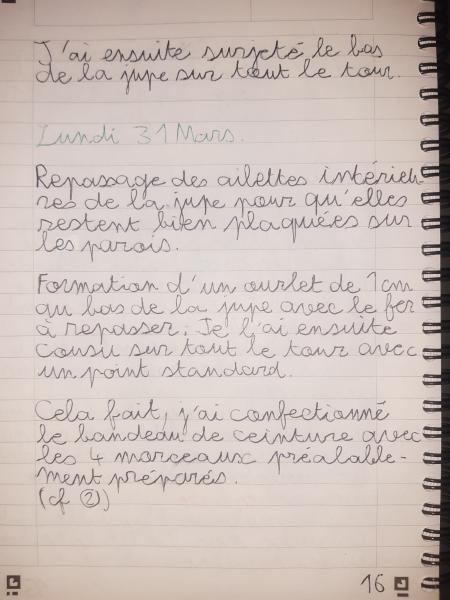 J'ai ensuite surjeté le bas
de la jupe sur tout le tour.
Lundi 31 Mars.
Repassage des ailettes intérieu-
res de la jupe pour qu'elles
restent bien plaquées sur
les parois.
Formation d'un ourlet de 1cm
au bas de la jupe avec le fer
à repasser. Je l'ai ensuite
cousu sur tout le tour avec
un point standard.
Cela fait, j'ai confectionné
le bandeau de ceinture avec
les 4 morceaux préalable-
ment préparés.
(cf ②)
16